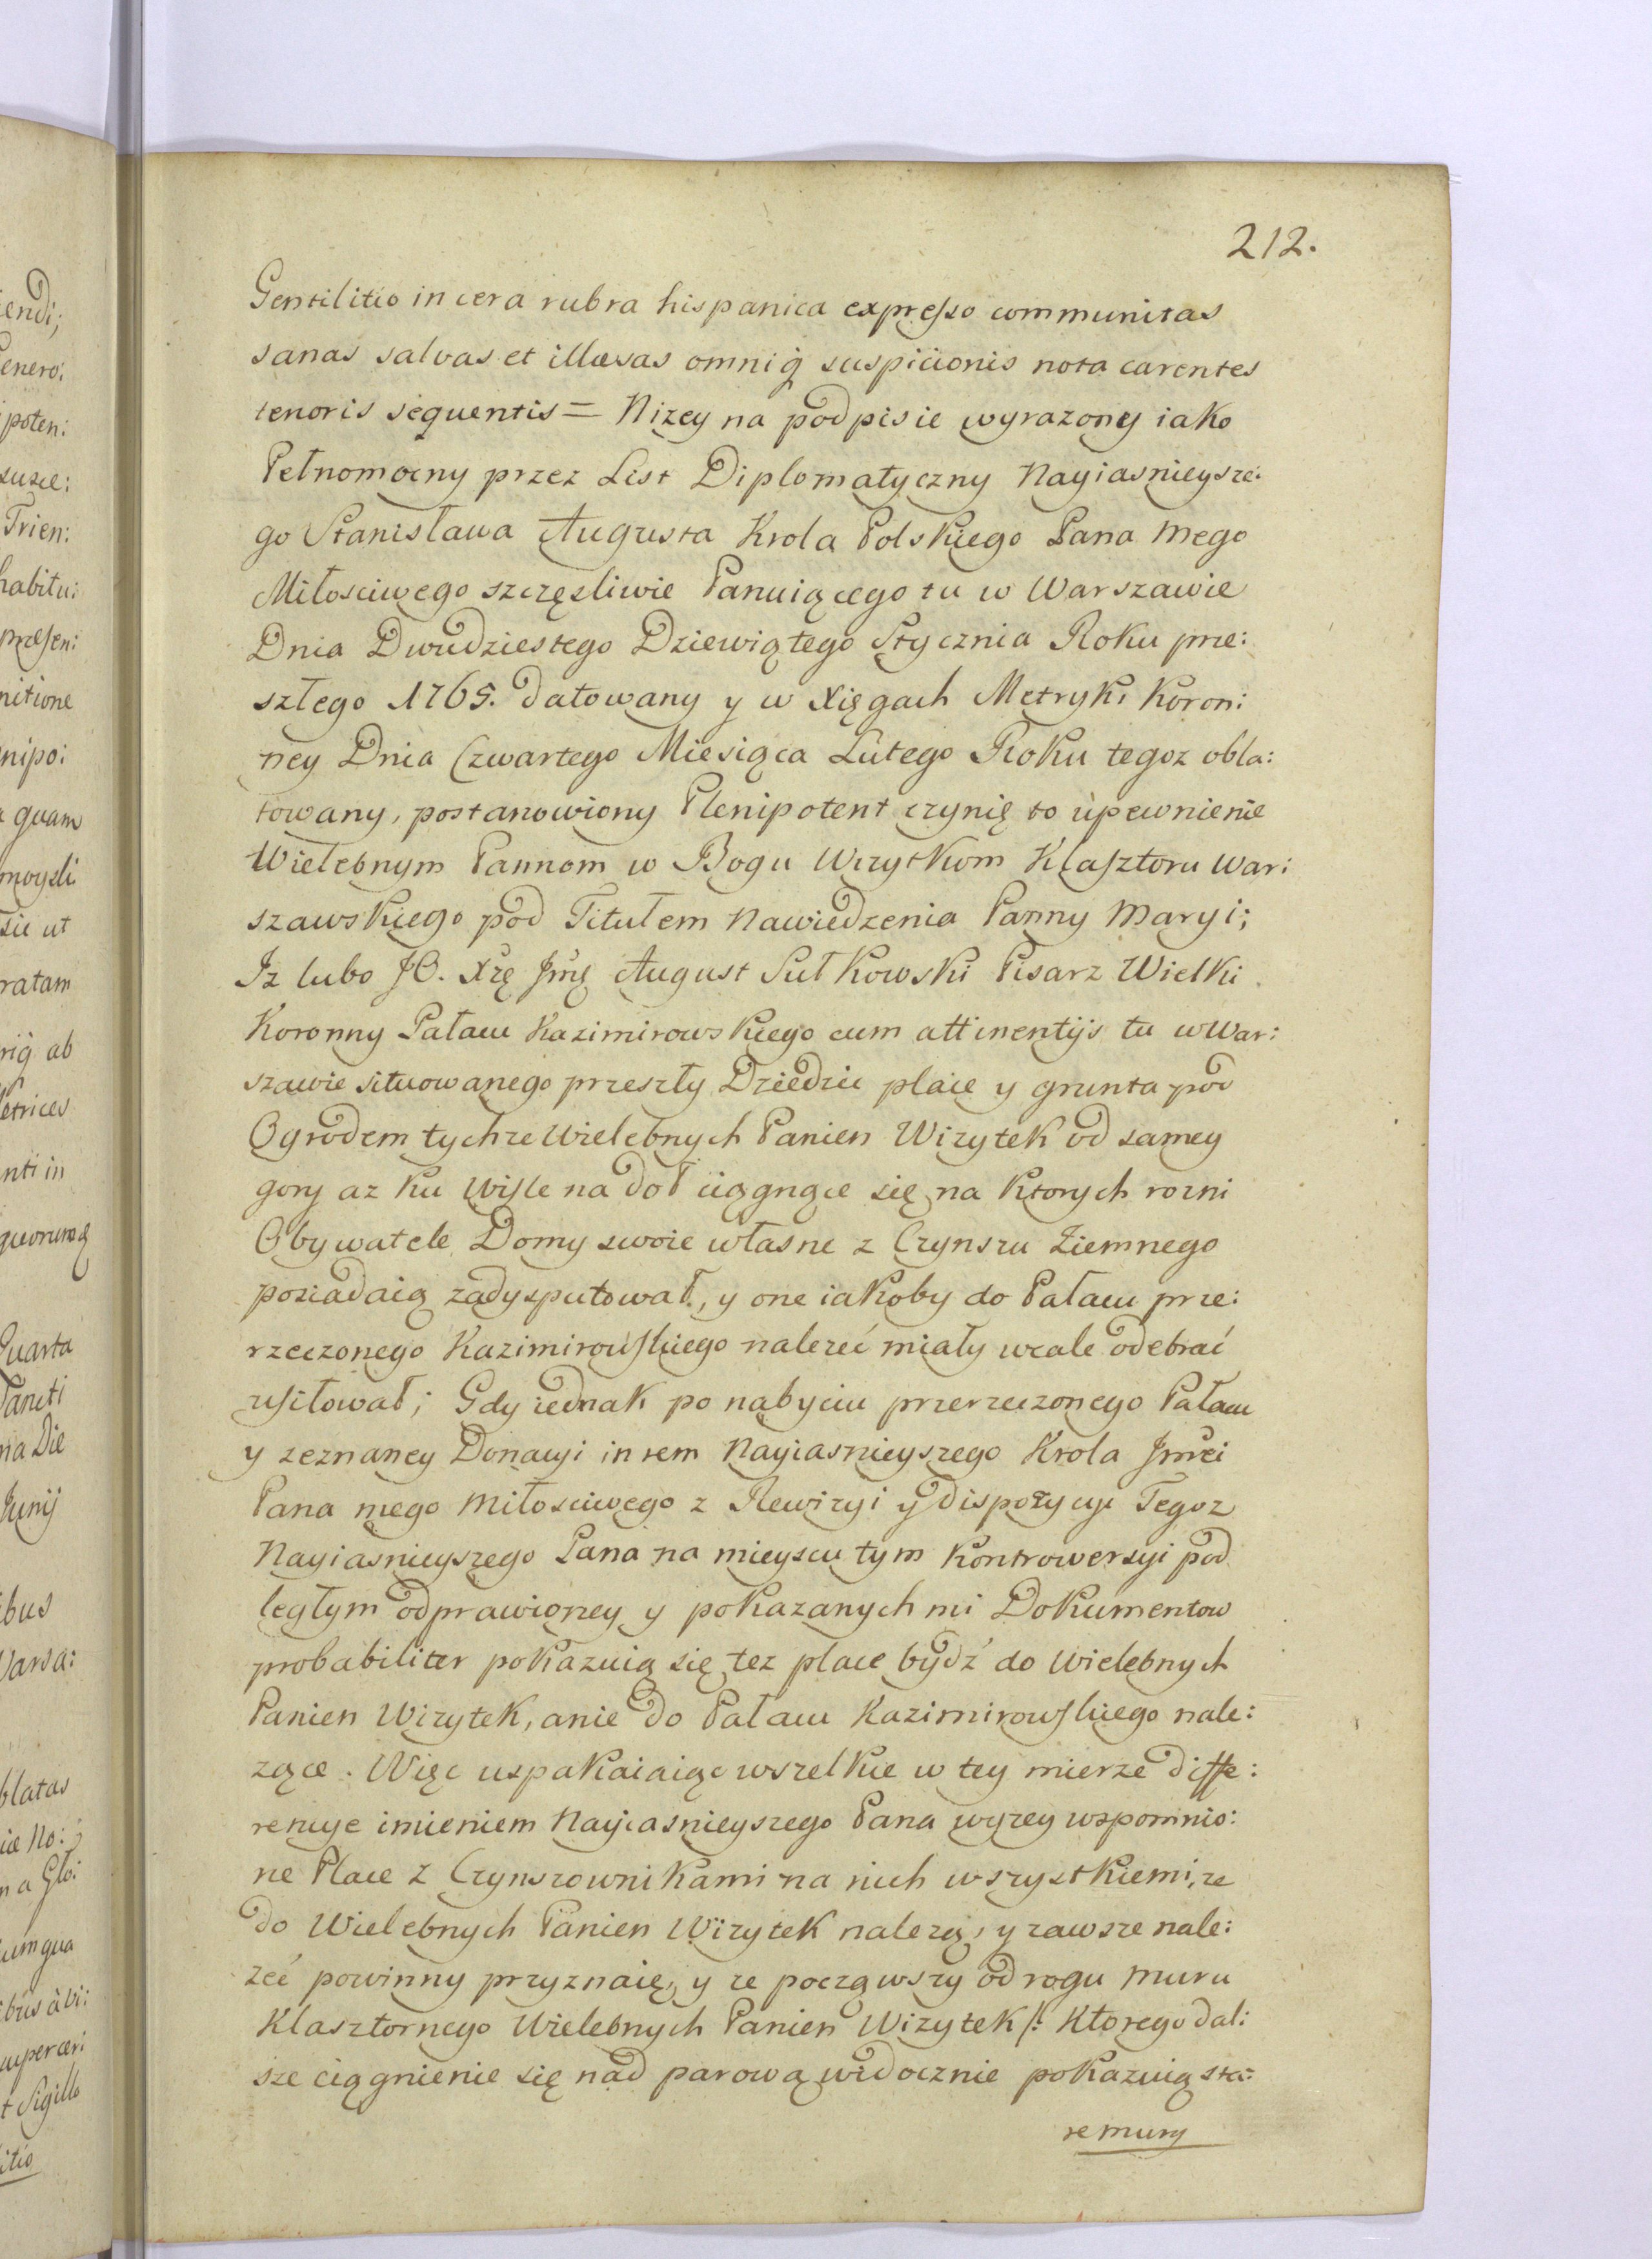 212.
Gentilitio in cera rubra hispanica expresso communitas
sanas salvas et illæsas omniq̃ suspicionis nota carentes
tenoris sequentis = Nizey na podpisie wyrazony iako
Pełnomocny przez List Diplomatyczny Nayiasnieysze:
go Stanisława Augusta Krola Polskiego Pana mego
Miłosciwego szczęsliwie Panuiącego tu w Warszawie
Dnia Dwudziestego Dziewiątego Stycznia Roku prze:
szłego 1765. datowany y w Xięgach Metryki Koron:
ney Dnia Czwartego Miesiąca Lutego Roku tegoz obla:
towany, postanowiony Plenipotent czynię to upewnienie
Wielebnym Pannom w Bogu Wizytkom Klasztoru War:
szawskiego pod Titułem Nawiedzenia Panny Maryi;
Iz lubo JO. Xżę Jmę August Sułkowski Pisarz Wielki
Koronny Pałacu Kazimirowskiego cum attinentijs tu w War:
szawie situowanego przeszły Dziedzic place y grunta pod
Ogrodem tychze Wielebnych Panien Wizytek od samey
gory az ku Wisle na doł ciągnące się na ktorych rozni
Obywatele Domy swoie własne z Czynszu Ziemnego
posiadaią zadysputował, y one iakoby do Pałacu prze:
rzeczonego Kazimirowskiego nalezeć miały wcale odebrać
usiłował; Gdy iednak po nabyciu przerzeczonego Pałacu
y zeznaney Donacyi in rem Nayiasnieyszego Krola Jmci
Pana mego Miłosciwego z Rewizyi y dispozycyi Tegoz
Nayiasnieyszego Pana na mieyscu tym Kontrowersyi pod
ległym odprawioney y pokazanych mi Dokumentow
probabiliter pokazuią się tez place bydź do Wielebnych
Panien Wizytek, a nie do Pałacu Kazimirowskiego nale:
zące. Więc uspakaiaiąc wszelkie w tey mierze diffe:
rencye imieniem Nayiasnieyszego Pana wyzey wspomnio:
ne Place z Czynszownikami na nich wszystkiemi, ze
do Wielebnych Panien Wizytek nalezą, y zawsze nale:
zeć powinny przyznaię, y ze począwszy od rogu muru
Klasztornego Wielebnych Panien Wizytek /: Ktorego dal:
sze ciągnienie się nad parową widocznie pokazuią sta:
re mury